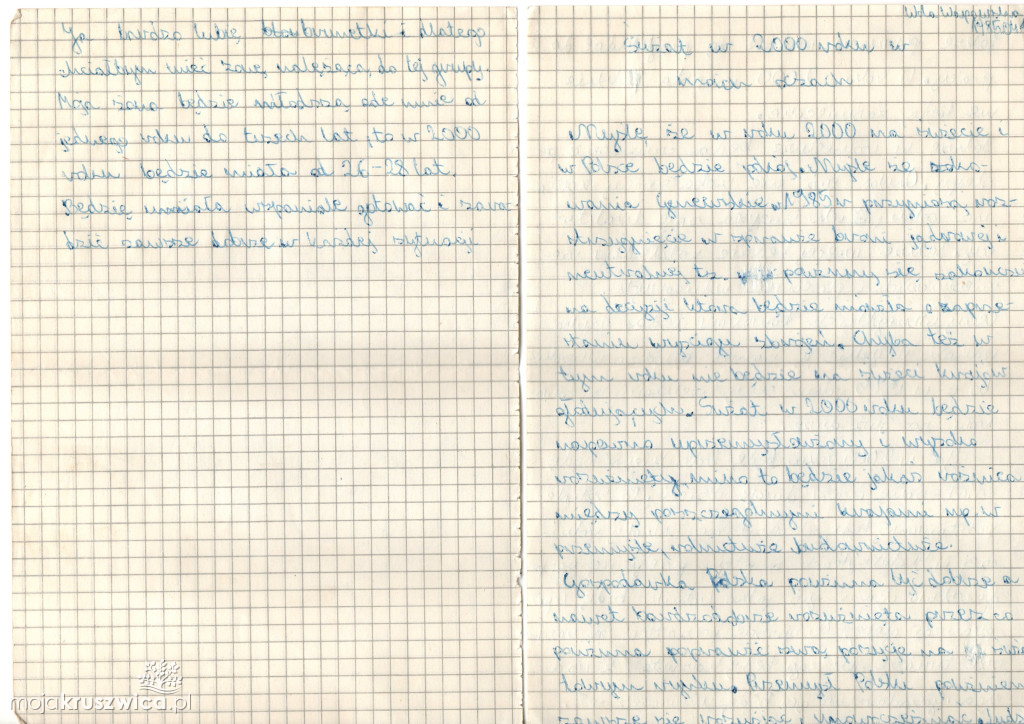 Ja bardzo lubię brunetki i dlatego
chciałbym mieć żonę należącą do tej grupy.
Moja żona będzie młodsza ode mnie od
jednego roku do trzech lat, to w 2000
roku będzie miała od 26-28 lat.
Będzie umiała wspaniale gotować i
dzić zawsze dobrze w każdej sytuacji
Świat w 2000 roku w
moich oczach
Myślę że w roku 2000 na świecie i
w Polsce będzie pokój. Myślę że roko-
wania Genewskie 1985 w przyniosą roz-
strzygnięcie w sprawie broni jądrowej i
neutralnej tz. powinny się zakończyć
na decyzji która będzie mówiła o zaprze-
staniu wyścigu zbrojeń. Chyba też w
tym roku nie będzie na świecie krajów
głodujących. Świat w 2000 roku będzie
napewno uprzemysłowiony i wysoko
rozwinięty, mimo to będzie jakaś różnica
między poszczególnymi krajami np. w
przemyśle, rolnictwie, budownictwie.
Gospodarka Polska powinna być dobrze a
nawet bardzo dobrze rozwinięta przez co
powinna poprawić swą pozycję na
towym rynku. Przemysł Polski powinien
zawsze się rozwijać i
mojakruszwica.pl